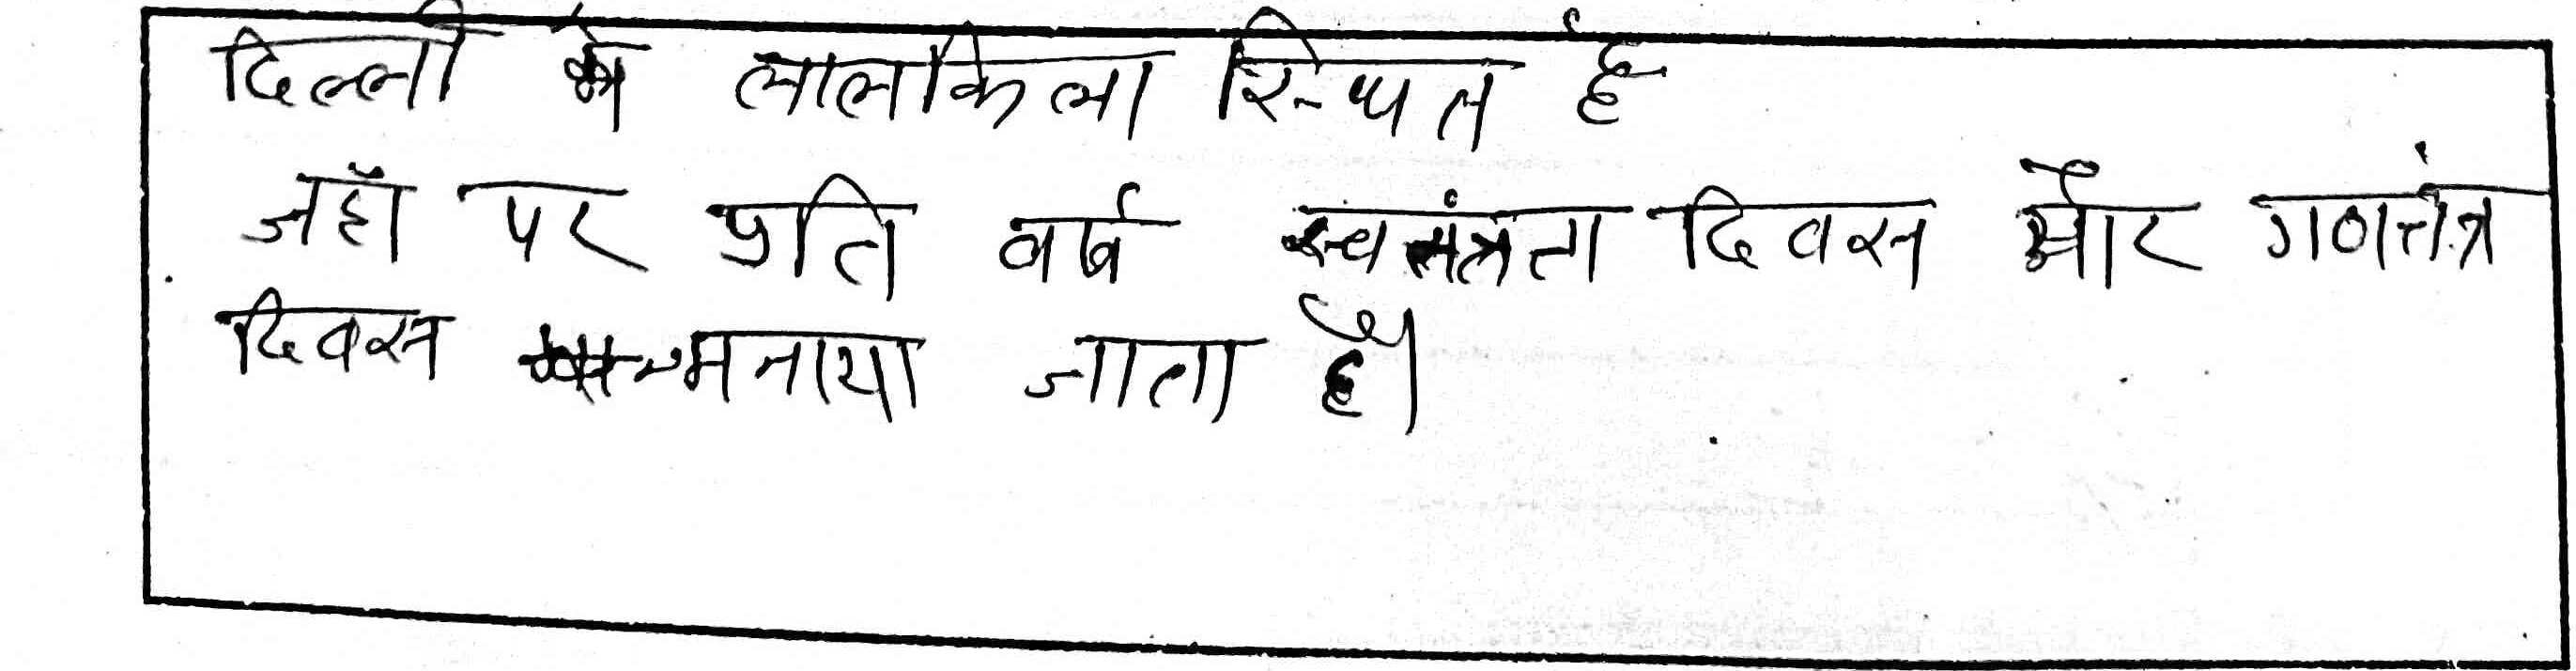 दिल्ली में लालकिला स्थित है
जहाँ पर प्रति वर्ष स्वतंत्रता दिवस और गणतंत्र
दिवस मनाया जाता है।